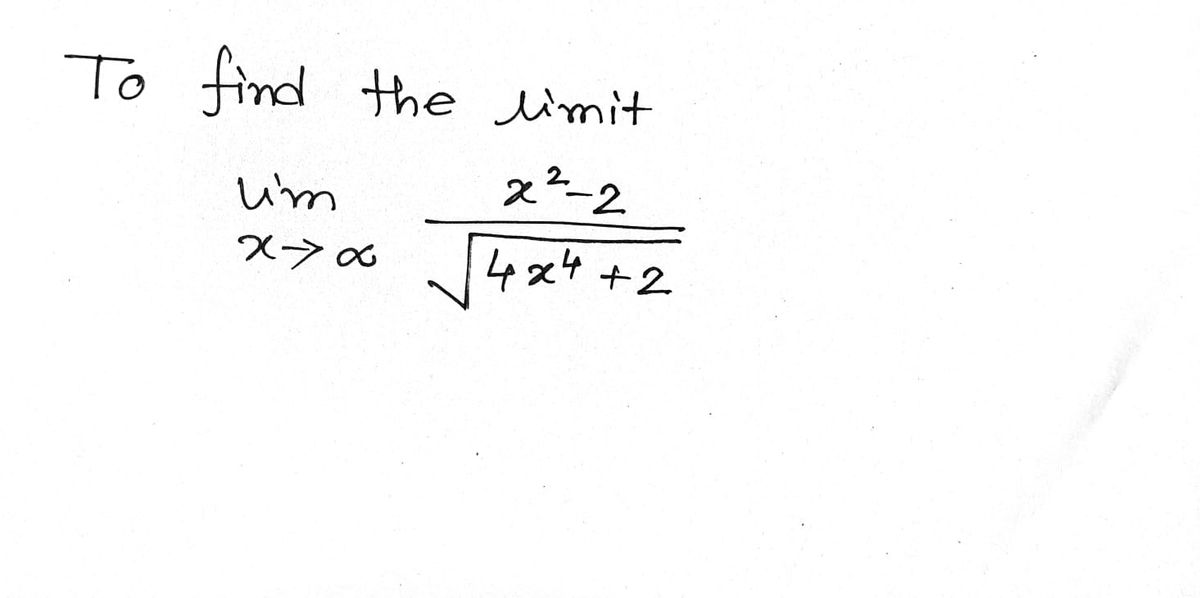 To find the limit
lim x→∞ (x²-2)/√(4x⁴+2)